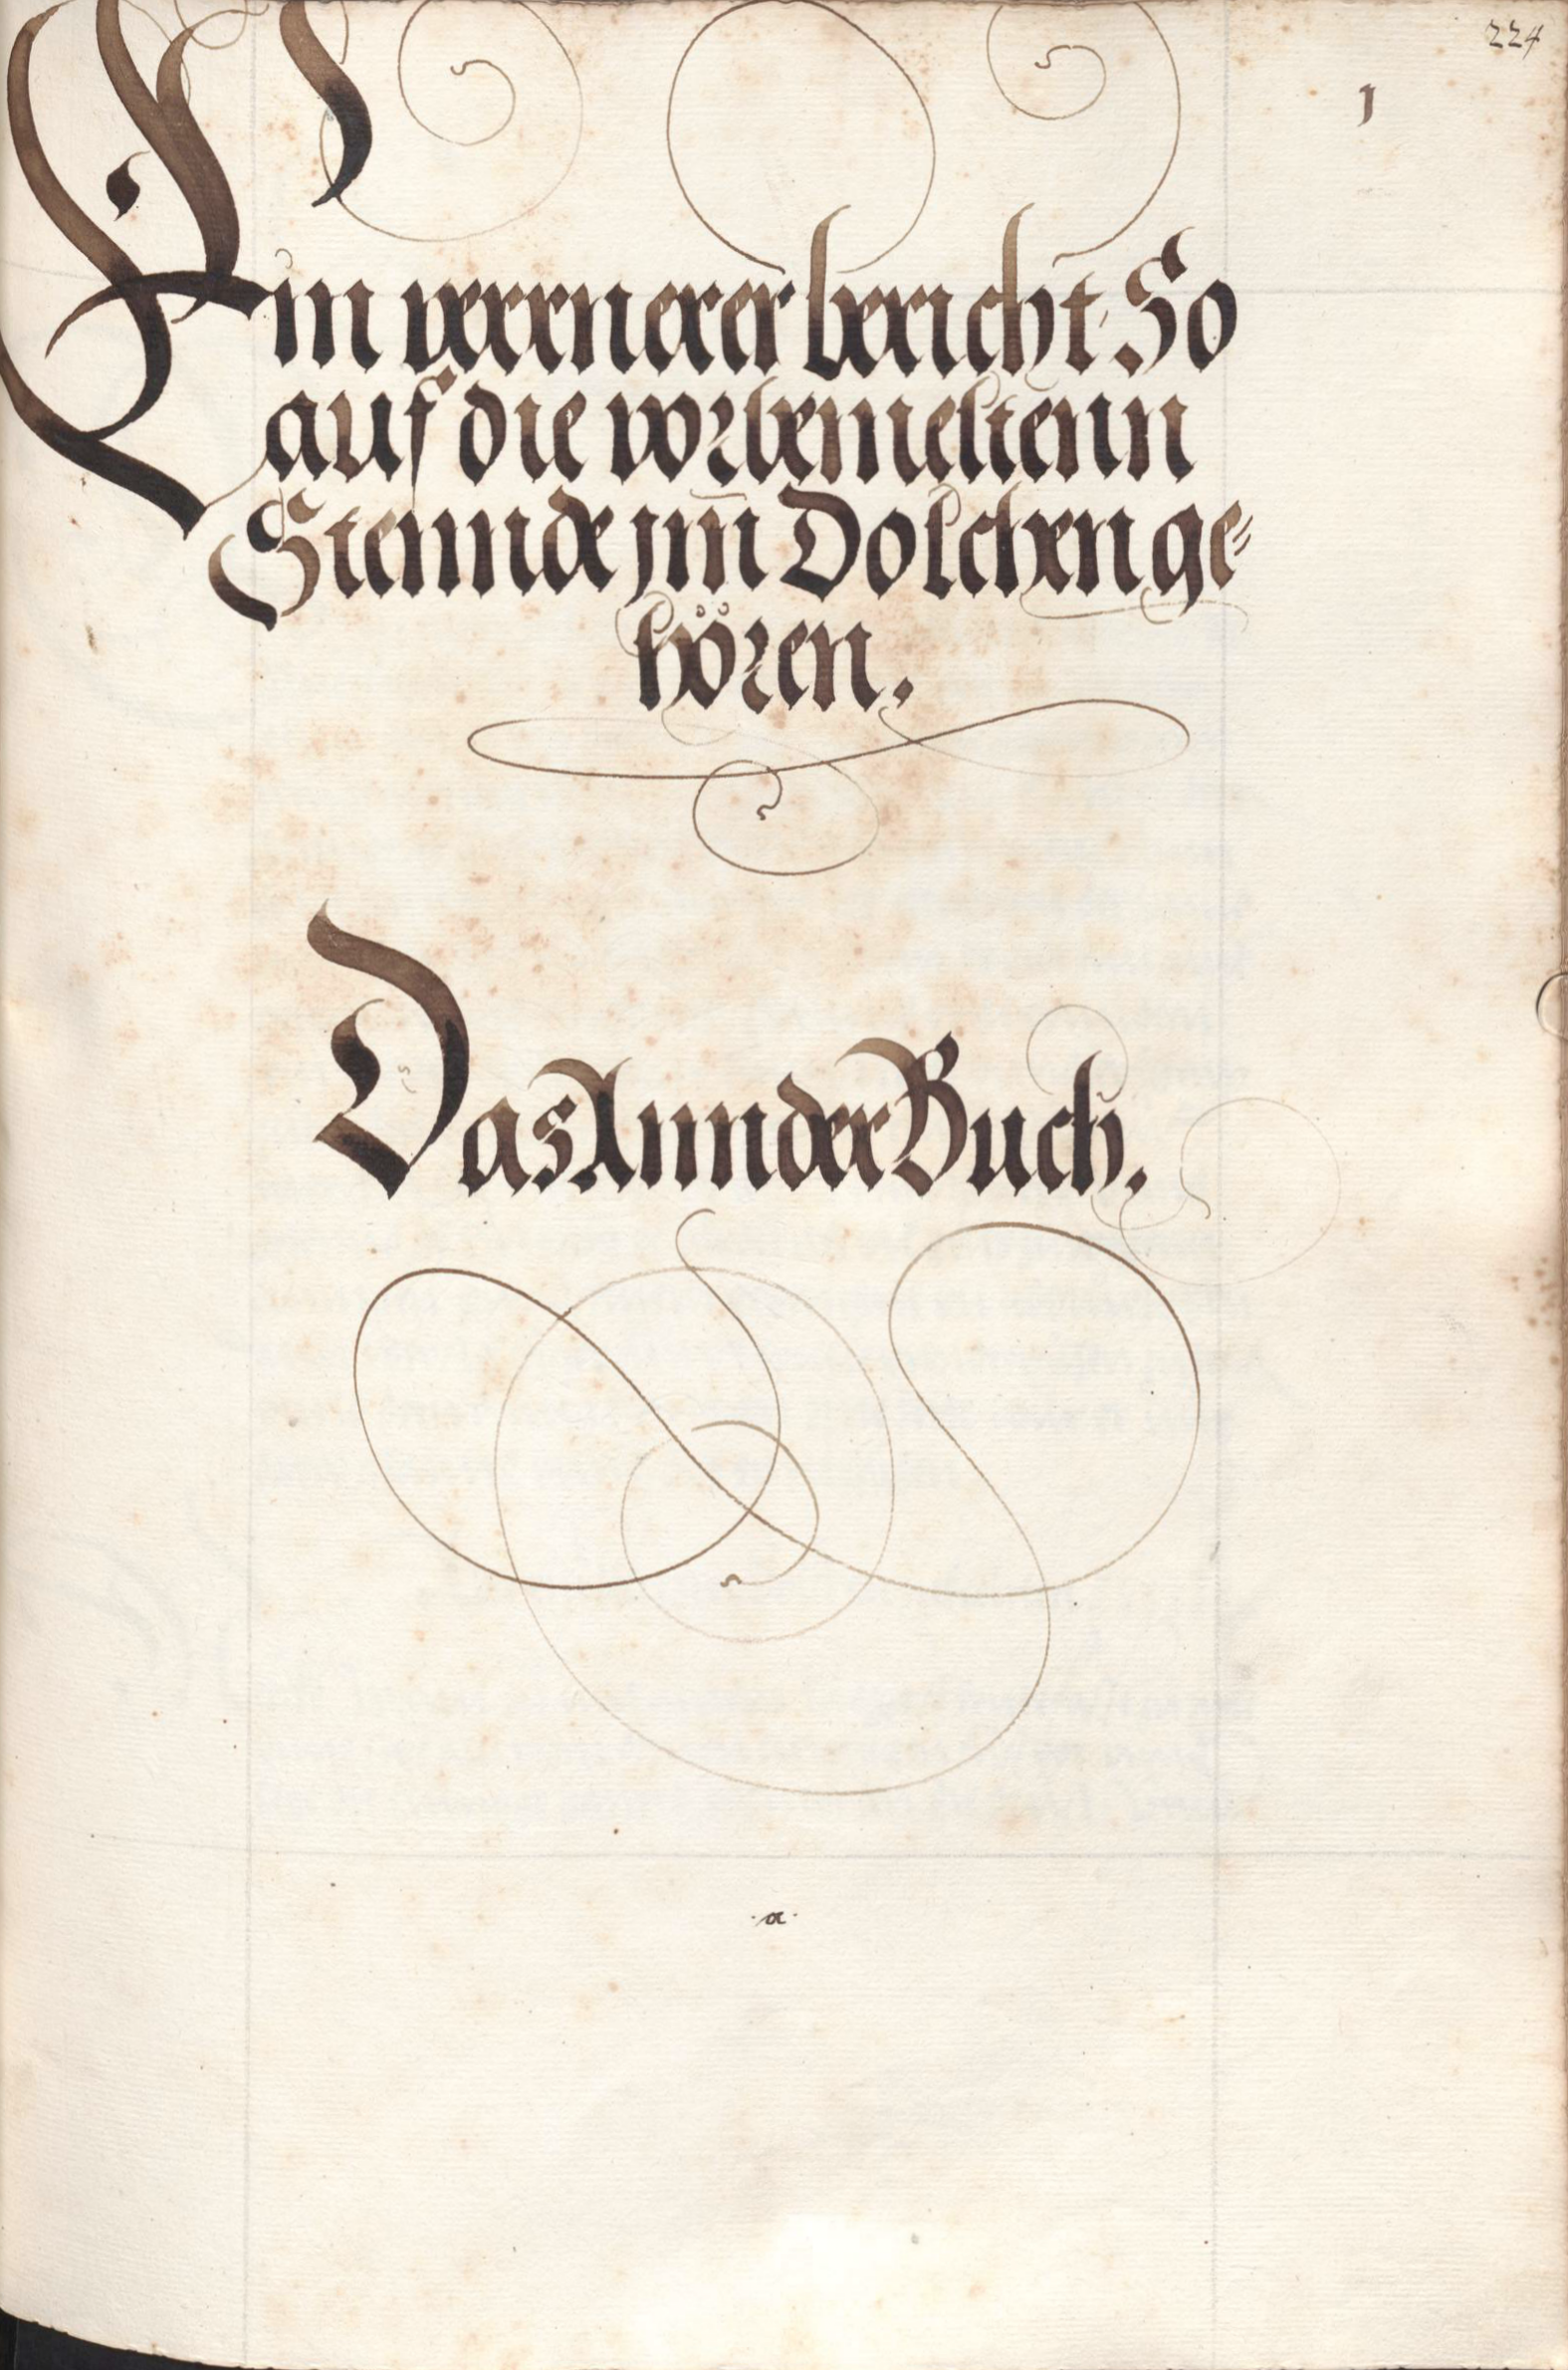 224
1
Ein verrnerer bericht. So
auf die vorbemeltenn
Stennde jnn Dolchen ge=
hören.
Das Annder Buch.
.a.